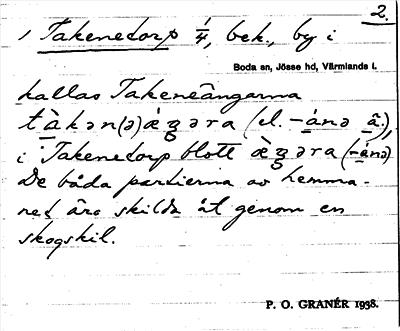 2.
1 Takenetorp 1/4, bek., by i
Boda sn, Jösse hd, Värmlands l.
kallas Takeneängarna
i Takenetorp blott
De båda partierna av hemma-
net äro skilda åt genom en
skogskil.
P. O. GRANÉR 1938.